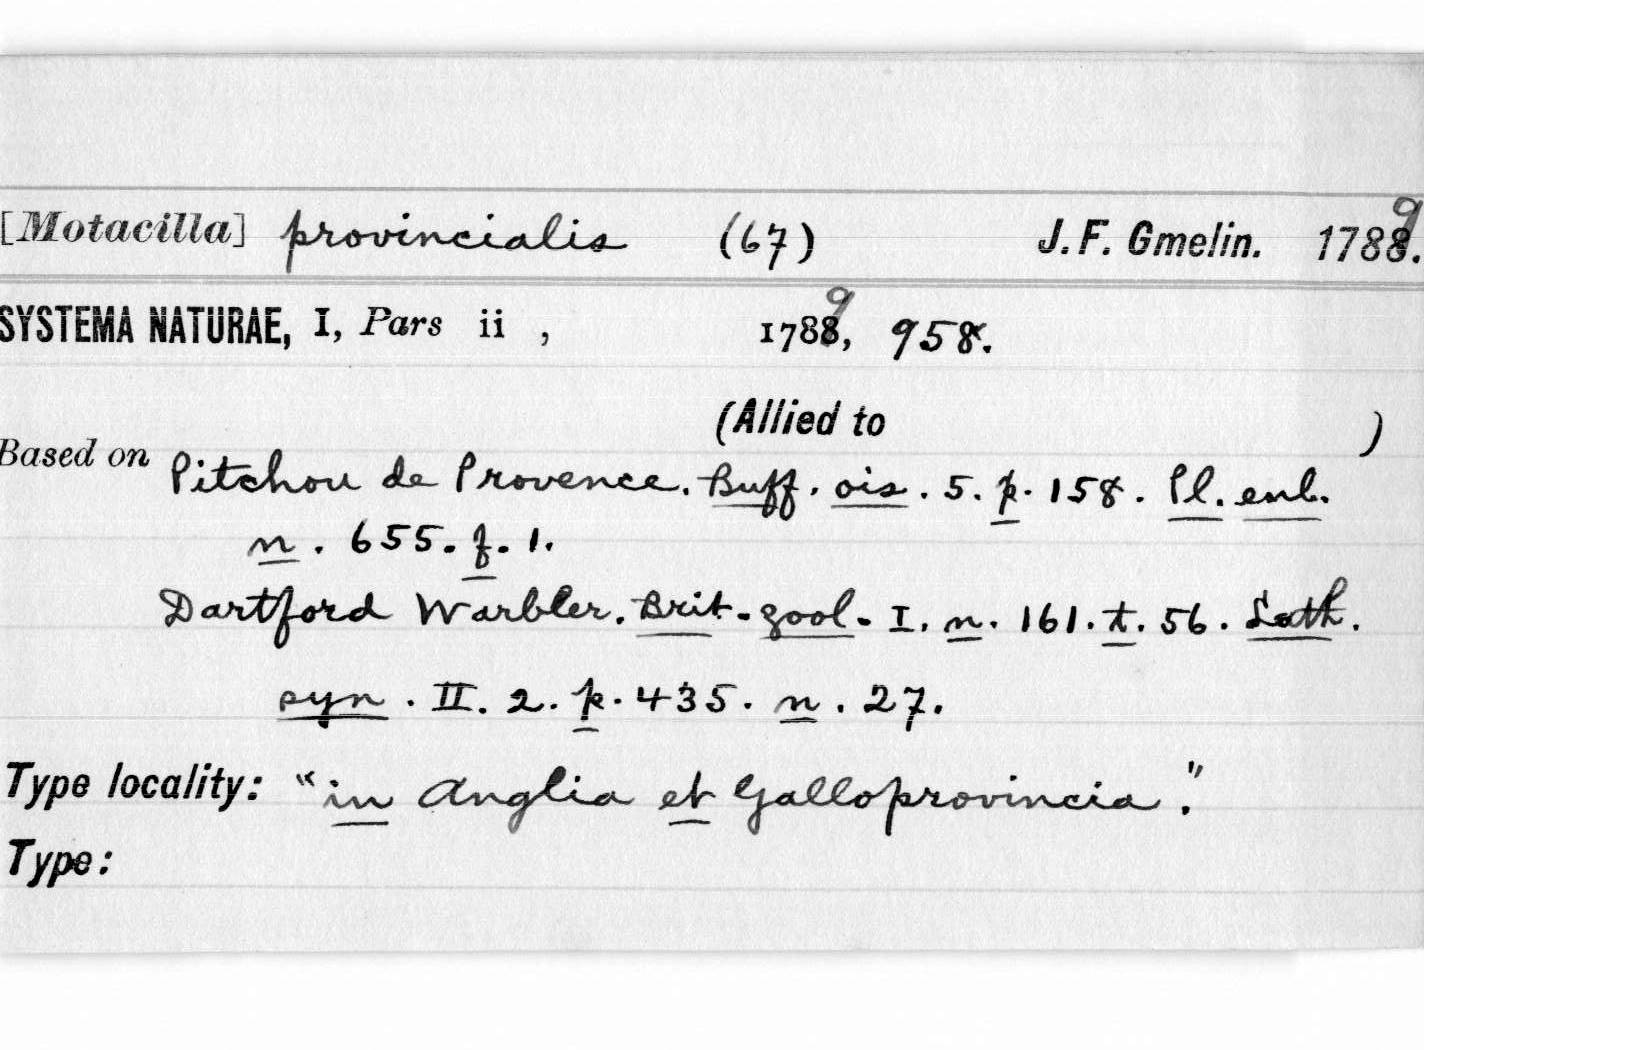 [Motacilla] provincialis (67) J. F. Gmelin. 1789.
SYSTEMA NATURAE, I, Pars ii , 1789, 958.
(Allied to )
Based on Pitchou de Provence. Buff. ois. 5. p. 158. Pl. enl.
n. 655. f. 1.
Dartford Warbler. Brit. zool. I. n. 161. t. 56. Lath.
syn. II. 2. p. 435. n. 27.
Type locality: "in Anglia et Galloprovincia."
Type: